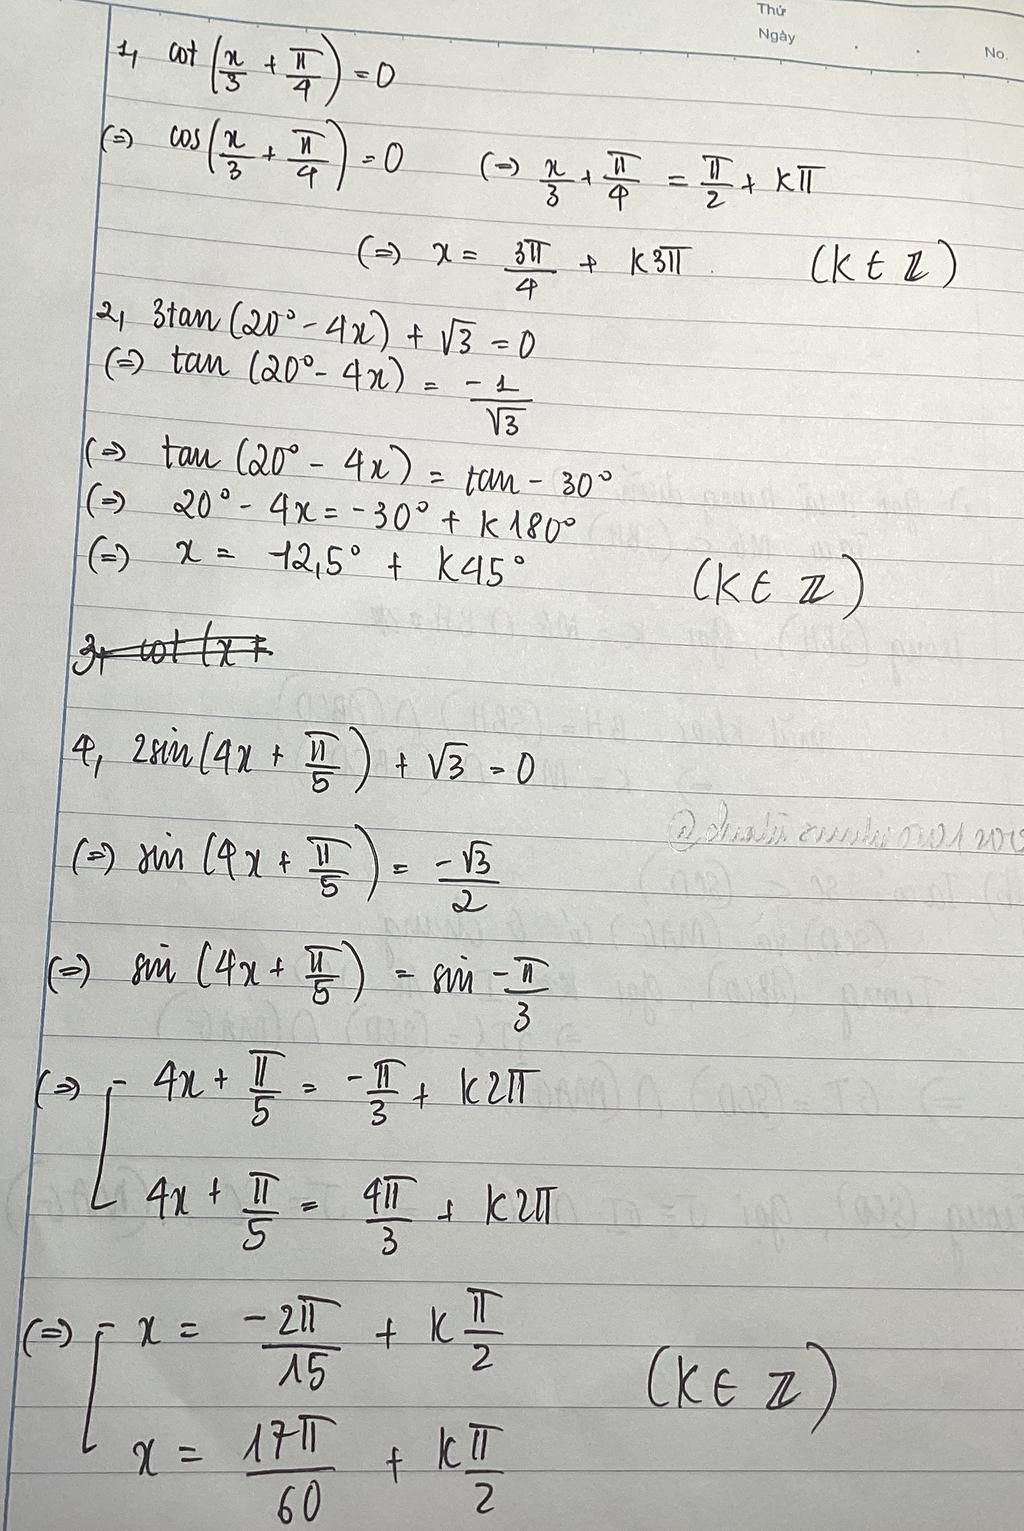 Thứ
Ngày
No.
1, cot(x/3 + π/4) = 0
(=) cos(x/3 + π/4) = 0 (=) x/3 + π/4 = π/2 + kπ
(=) x = 3π/4 + k3π (k ∈ ℤ)
2, 3tan(20° - 4x) + √3 = 0
(=) tan(20° - 4x) = -1/√3
(=) tan(20° - 4x) = tan - 30°
(=) 20° - 4x = -30° + k180°
(=) x = 12,5° + k45° (k ∈ ℤ)
3, cot(x +
4, 2sin(4x + π/5) + √3 = 0
(=) sin(4x + π/5) = -√3/2
(=) sin(4x + π/5) = sin -π/3
(=) [ 4x + π/5 = -π/3 + k2π
4x + π/5 = 4π/3 + k2π
(=) [ x = -2π/15 + kπ/2 (k ∈ ℤ)
x = 17π/60 + kπ/2